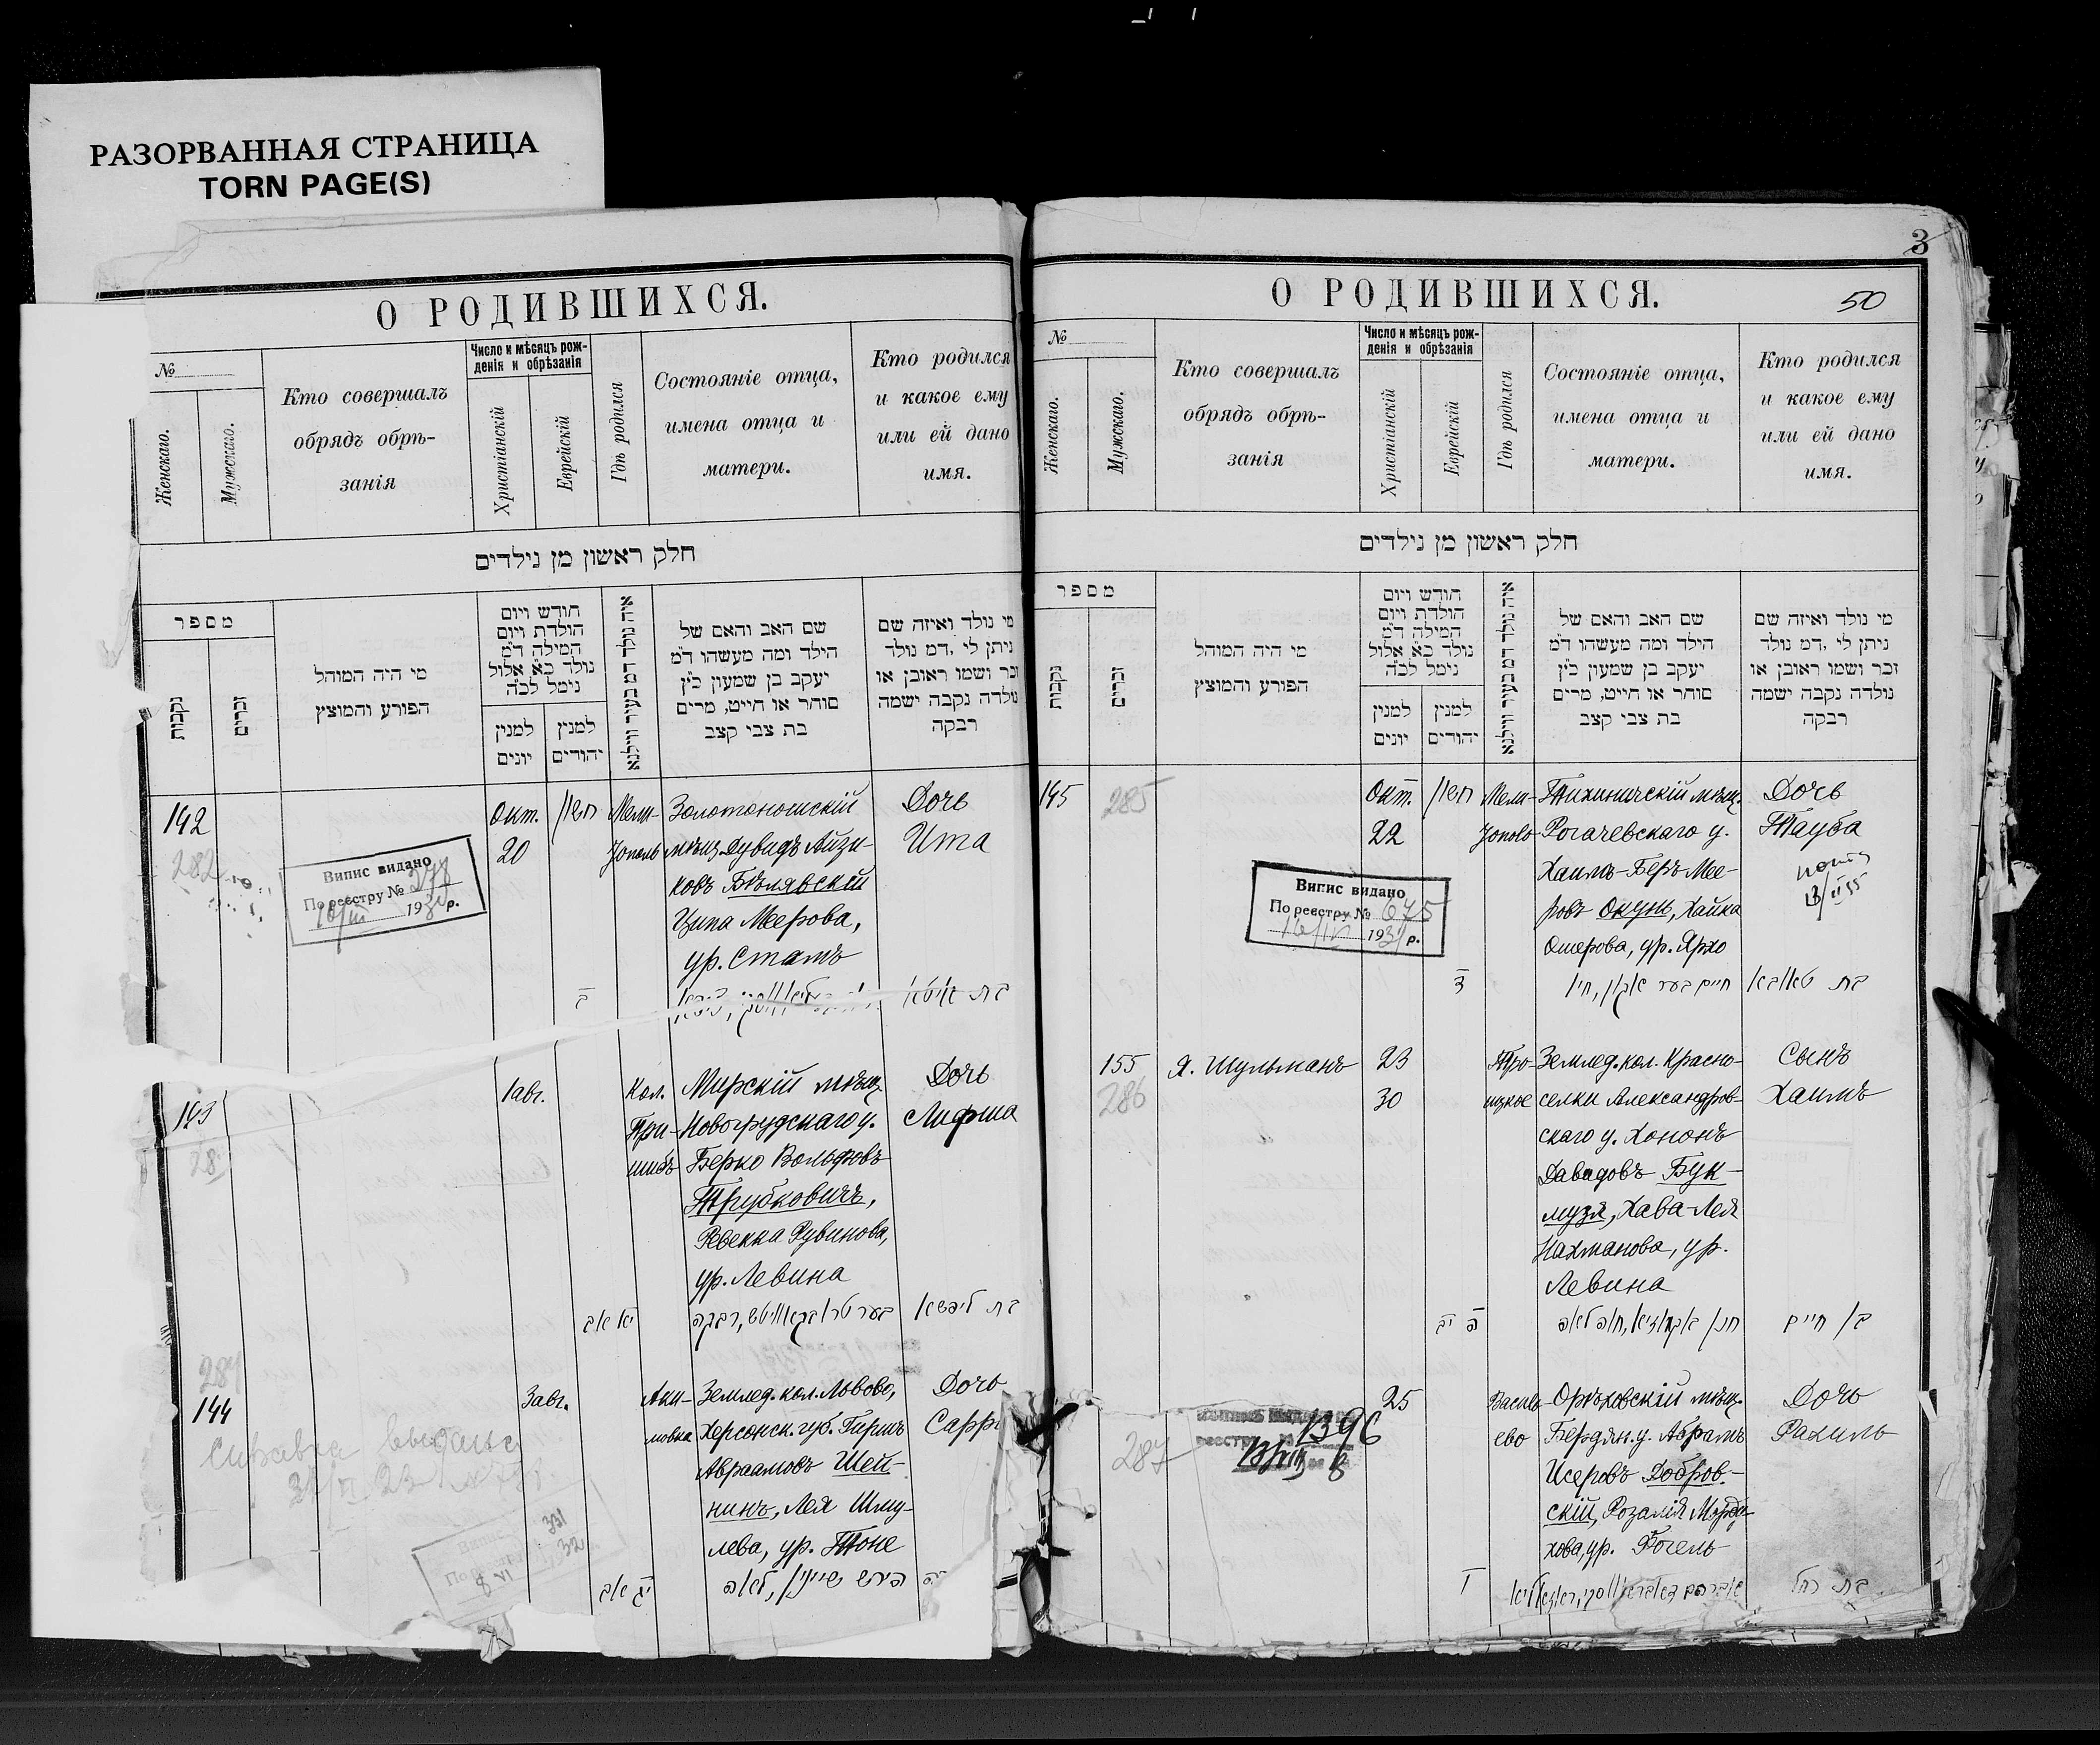 РАЗОРВАННАЯ СТРАНИЦА
TORN PAGE(S)
О РОДИВШИХСЯ.
№
Женскаго.
Мужскаго.
Кто совершалъ
обрядъ обрѣ-
занія
Число и мѣсяцъ рож-
денія и обрѣзанія
Христіанскій
Еврейскій
Гдѣ родился
Состояніе отца,
имена отца и
матери.
Кто родился
и какое ему
или ей дано
имя.
חלק ראשון מן נילדים
מספר
נקבות
זכרים
מי היה המוהל
הפורע והמוצץ
חודש ויום
הולדת ויום
המילה ד״מ
נולד כ״א אלול
נימל לכ״ה
למנין
יונים
למנין
יהודים
איה נולד דמ בעיר ווילנא
שם האב והאם של
הילד ומה מעשהו ד״מ
יעקב בן שמעון כ״ץ
סוחר או חייט, מרים
בת צבי קצב
מי נולד ואיזה שם
ניתן לי ,דמ נולד
זכר ושמו ראובן או
נולדה נקבה ישמה
רבקה
142
282
Випис видано
По реєстру №
193 р.
Окт.
20
חשון
Мели-
тополь
Золотоношскій
мѣщ. Дувидъ Айзи-
ковъ Бѣлявскій
Ципа Меерова,
ур. Стамъ
Дочь
Ита
ב
בת איטא
143
28
1 авг.
Кол.
При-
шибъ
Мирскій мѣщ.
Новогрудскаго у.
Берко Вольфовъ
Трубковичъ,
Ревекка Рувинова,
ур. Левина
Дочь
Лифша
יא אב
בער טרובקאוויטש, רבקה
בת ליפשא
284
144
Справка выдана
3 авг.
Аки-
мовка
Землед. кол. Львово,
Херсонск. губ. Гиршъ
Авраамовъ Шей-
нинъ, Лея Шму-
лева, ур. Тоне
Дочь
Сарра
331
32
8 VI
יג אב
הירש שיינין, לאה
3
О РОДИВШИХСЯ.
50
№
Женскаго.
Мужскаго.
Кто совершалъ
обрядъ обрѣ-
занія
Число и мѣсяцъ рож-
денія и обрѣзанія
Христіанскій
Еврейскій
Гдѣ родился
Состояніе отца,
имена отца и
матери.
Кто родился
и какое ему
или ей дано
имя.
חלק ראשון מן נילדים
מספר
נקבות
זכרים
מי היה המוהל
הפורע והמוצץ
חודש ויום
הולדת ויום
המילה ד״מ
נולד כ״א אלול
נימל לכ״ה
למנין
יונים
למנין
יהודים
איה נולד דמ בעיר ווילנא
שם האב והאם של
הילד ומה מעשהו ד״מ
יעקב בן שמעון כ״ץ
סוחר או חייט, מרים
בת צבי קצב
מי נולד ואיזה שם
ניתן לי ,דמ נולד
זכר ושמו ראובן או
נולדה נקבה ישמה
רבקה
145
285
Випис видано
По реєстру № 675
193 р.
Окт.
22
חשון
Мели-
тополь
Тихиничскій мѣщ.
Рогачевскаго у.
Хаимъ-Беръ Мее-
ровъ Окунь, Хайка
Омерова, ур. Ярхо
Дочь
Тауба
ד
חיים בער אקון, חיי
בת טאובא
155
286
Я. Шульманъ
23
30
Тро-
ицкое
Землед. кол. Красно-
селки Александров-
скаго у. Хононъ
Давидовъ Бук-
музя, Хава-Лея
Нахманова, ур.
Левина
Сынъ
Хаимъ
ה יב
חנן בוקמוזיא, חוה לאה
בן חיים
287
1396
25
Василь-
ево
Орѣховскій мѣщ.
Бердян. у. Абрамъ
Исеровъ Добров-
скій, Розалія Морду-
хова, ур. Фогель
Дочь
Рахиль
ז
אברהם דאבראווסקי, ראזאליא
בת רחל